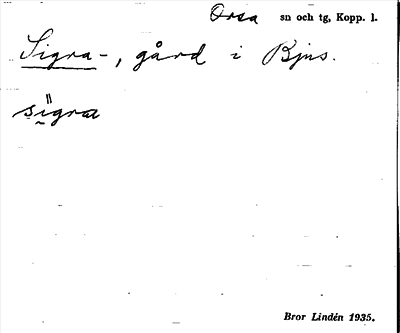 Orsa sn och tg, Kopp. l.
Sigra-, gård i Bjns.
Bror Lindén 1935.